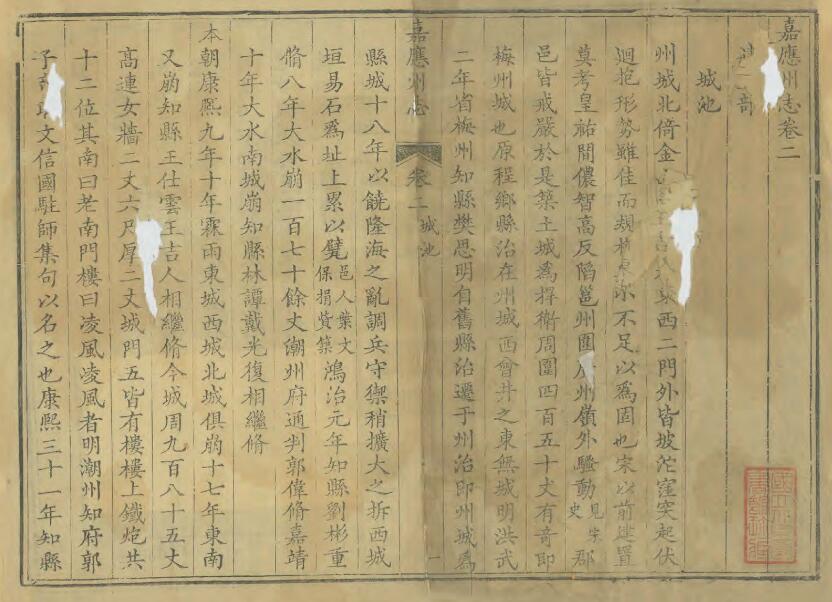 嘉應州志卷二
部
城池
州城北倚金山東西二門外皆坡沱窪突起伏
迴抱形勢雖佳而規不足以為固也宋以前建置
莫考皇祐間儂智高反陷邕州圍州嶺外騷動見宋史郡
邑皆戒嚴於是築土城為捍衛周圍四百五十丈有奇即
梅州城也原程鄉縣治在州城西會井之東無城明洪武
二年省梅州知縣樊思明自舊縣治遷于州治即州城為
嘉應州志 卷二 城池 一
縣城十八年以饒隆海之亂調兵守禦稍擴大之拆西城
垣易石為址上累以甓邑人葉文保捐貲築鴻治元年知縣劉彬重
脩八年大水崩一百七十餘丈潮州府通判郭偉脩嘉靖
十年大水南城崩知縣林譚戴光復相繼脩
本朝康熙九年十年霖雨東城西城北城俱崩十七年東南
又崩知縣王仕雲王吉人相繼脩今城周九百八十五丈
高連女牆二丈六尺厚二丈城門五皆有樓樓上鐵炮共
十二位其南曰老南門樓曰凌風凌風者明潮州知府郭
子文信國駐師集句以名之也康熙三十一年知縣